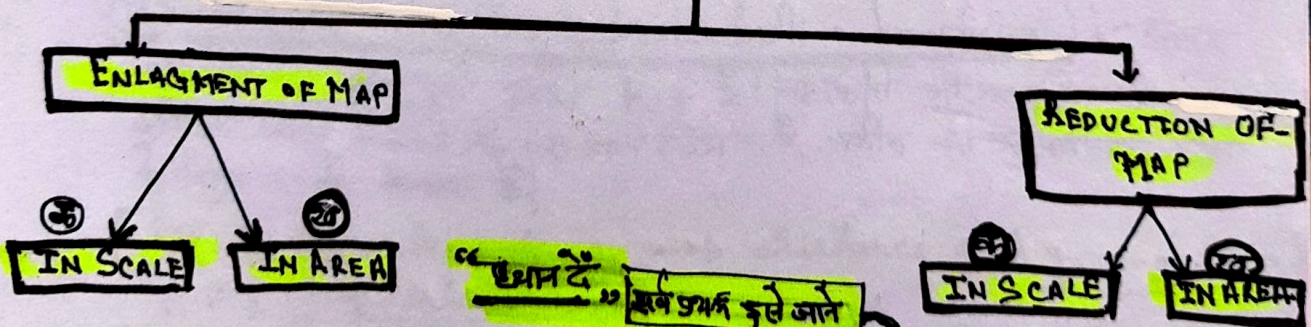 ENLAGMENT OF MAP
REDUCTION OF-
MAP
क
ख
IN SCALE
IN AREA
"ध्यान दें"
सर्व प्रथम इसे जाने
क
ख
IN SCALE
IN AREA